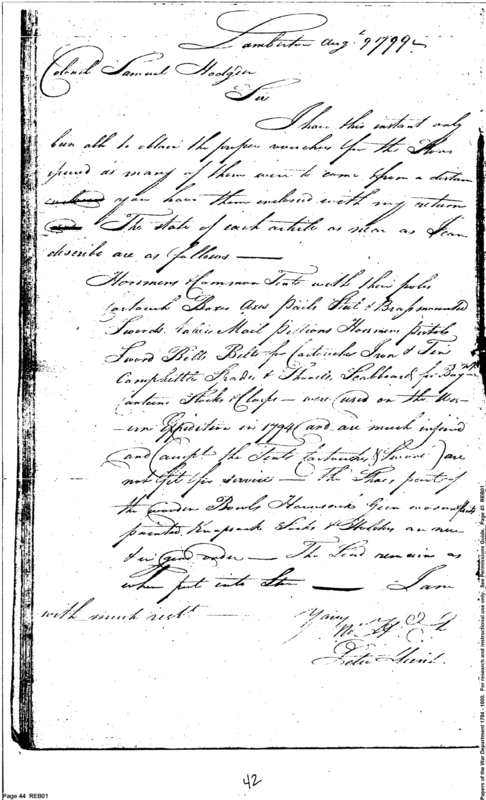 Lamberton Augt 9 1799
Colonel Samuel Hodgson
Sir
I have this instant only
been able to obtain the proper vouchers for the Stores
as many of them were to come from a distance
you have them inclosed with my return
The state of each article as near as I can
describe are as follows —
Horsmens & Common Tents with their poles
Cartouch Boxes Axes Pails Steel & Brass mounted
Swords Mail Horsmens Pistols
Sword Belts Belts for Cartouches Iron & Tin
Camp kettles Spades & Shovels, Scabboards for
Canteens Stocks & Clasps — were used on the Wes-
-ern Expedition in 1794 (and are much injured
and except the Tents Cartouches, & Swords) are
not fit for service — The
the wooden Bowls Haversacks
painted Knapsack & are new
& in good order — The Lead remains as
when put into Store — I am
with much rest
Yours
Peter Hunt
42
Page 44 REB01
Papers of the War Department 1784 - 1800. For research and instructional use only. See Permissions Guide. Page 45 REB01